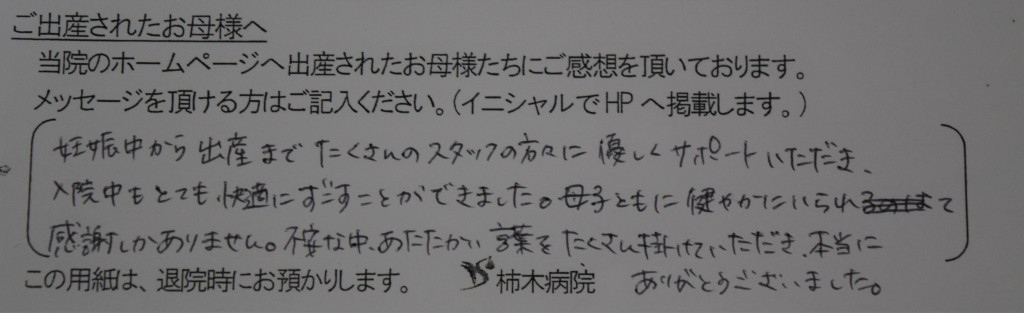 ご出産されたお母様へ
当院のホームページへ出産されたお母様たちにご感想を頂いております。
メッセージを頂ける方はご記入ください。(イニシャルでHPへ掲載します。)
妊娠中から出産までたくさんのスタッフの方々に優しくサポートいただき、
入院中もとても快適にすごすことができました。母子ともに健やかにいられて
感謝しかありません。不安な中、あたたかい言葉をたくさん掛けていただき、本当に
この用紙は、退院時にお預かりします。 柿木病院 ありがとうございました。